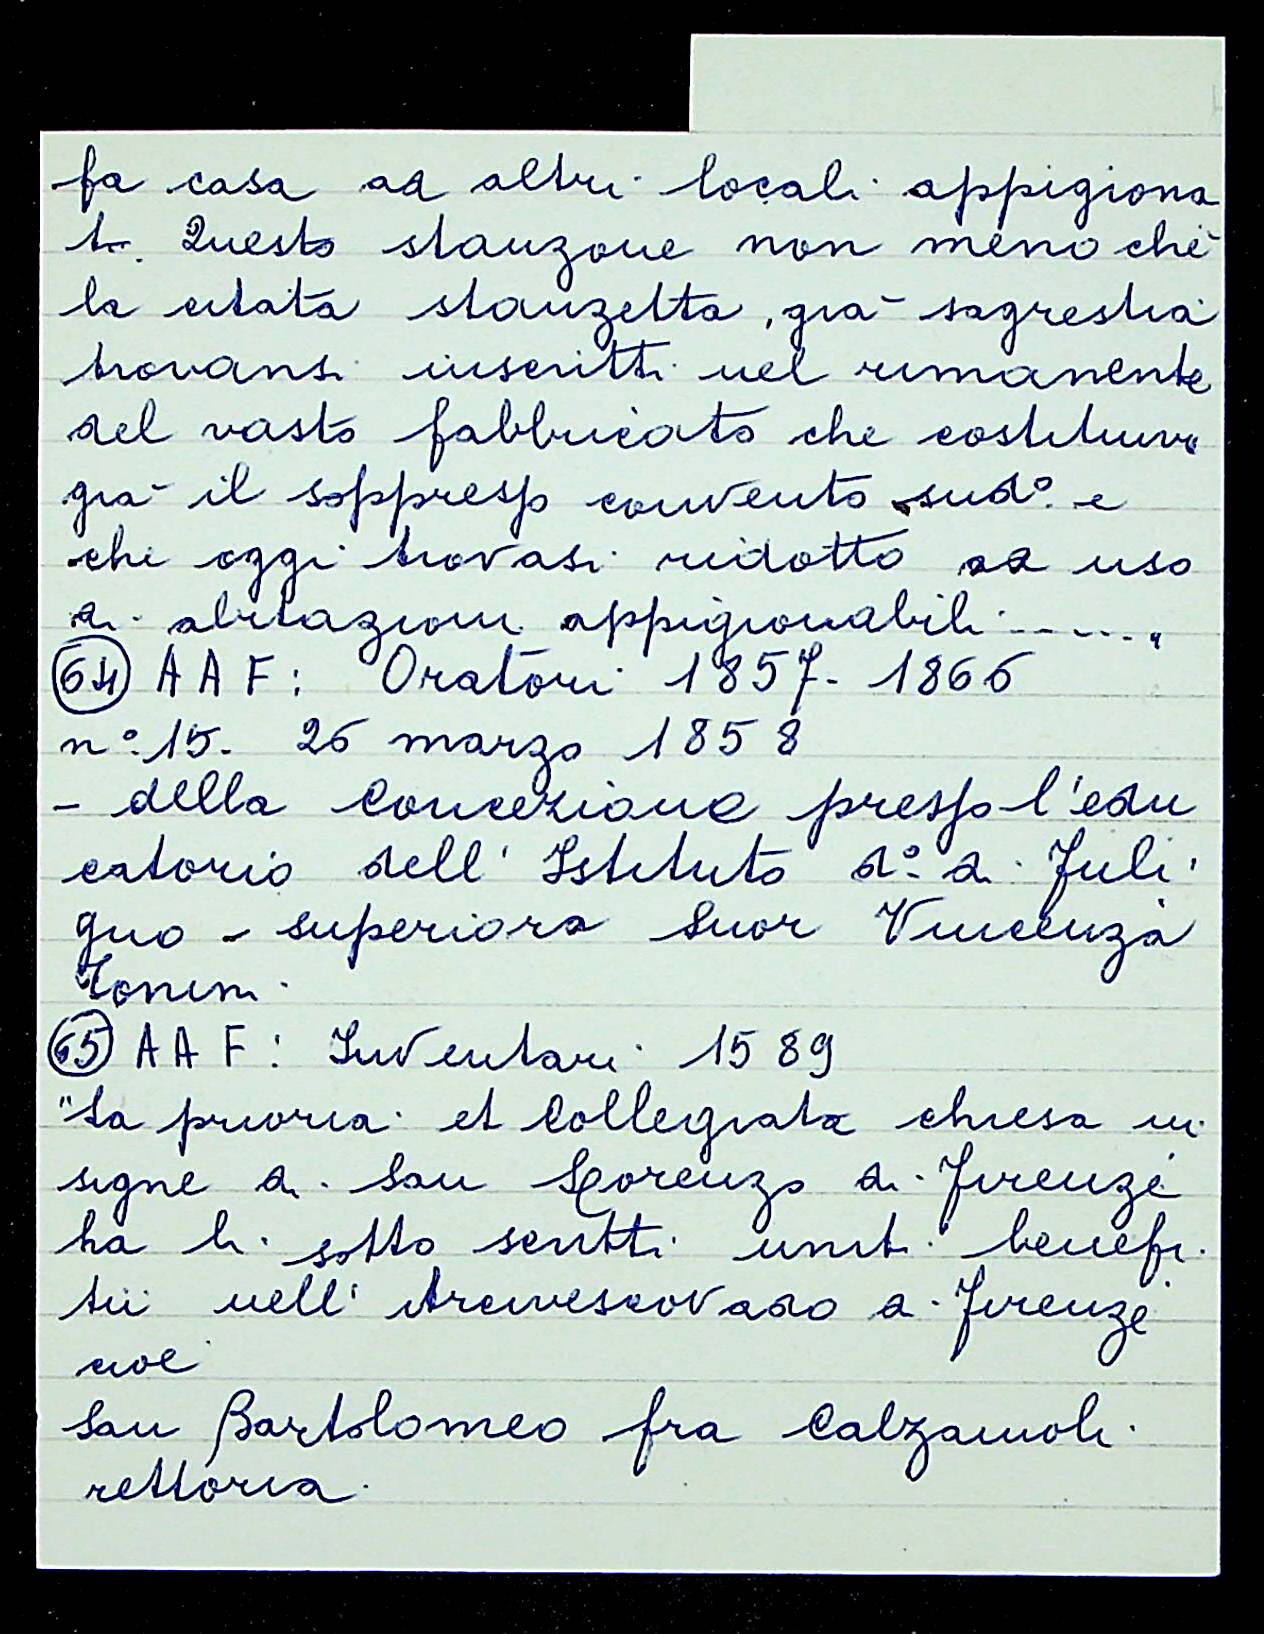 fa casa ad altri locali appigiona
ti. Questo stanzone non meno chè
la citata stanzetta, già sagrestia
trovansi inscritti nel rimanente
del vasto fabbricato che costituiva
già il soppresso convento sudº. e
che oggi trovasi ridotto ad uso
di abitazioni appigionabili......"
64 A A F: Oratori 1857- 1866
nº. 15. 26 marzo 1858
- della Concezione presso l'edu
catorio dell' Istituto dº. di Fuli
gno - superiora Suor Vincenza
65 A A F: Inventari 1589
"La prioria et Collegiata chiesa in
signe di San Lorenzo di Firenze
ha li sotto scritti uniti benefi
tii nell' Arcivescovado di Firenze
cioè
San Bartolomeo fra Calzaiuoli
rettoria